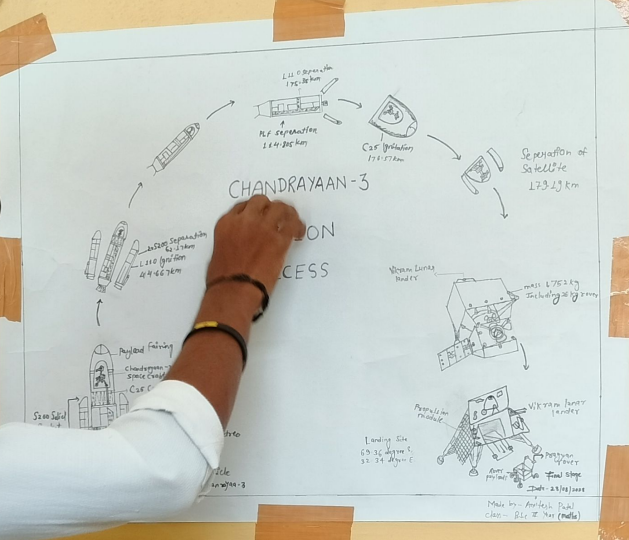 L110 separation
175.35km
PLF separation
114.805km
C25 Ignition
176.57km
Seperation of
Satellite
179.19km
CHANDRAYAAN-3
ON
CESS
S200 separation
62.17km
L110 Ignition
44.667km
Payload Fairing
Chandrayaan-
C25
S200 Solid
Vikram Lunar
lander
mass 1752kg
Including 26kg rover
Propulsion
module
Vikram lunar
lander
Landing Site
69.36 degree S,
32.34 degree E.
Pragyan
rover
Rover
payload
Final stage
Date- 23/08/2023
Made by:- Amitesh Patel
Class:- B.Sc II Year (maths)